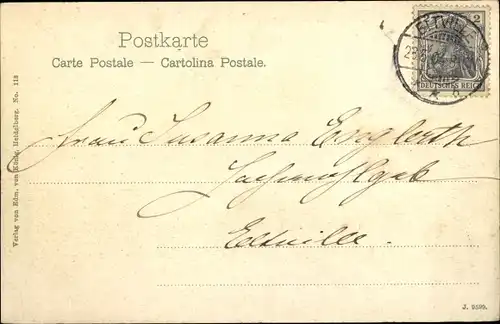 Postkarte
Carte Postale — Cartolina Postale.
ELTVILLE
2
DEUTSCHES REICH
Frau Susanna Englerth
Eltville.
Verlag von Edm. von König, Heidelberg. No. 113
J. 9590.